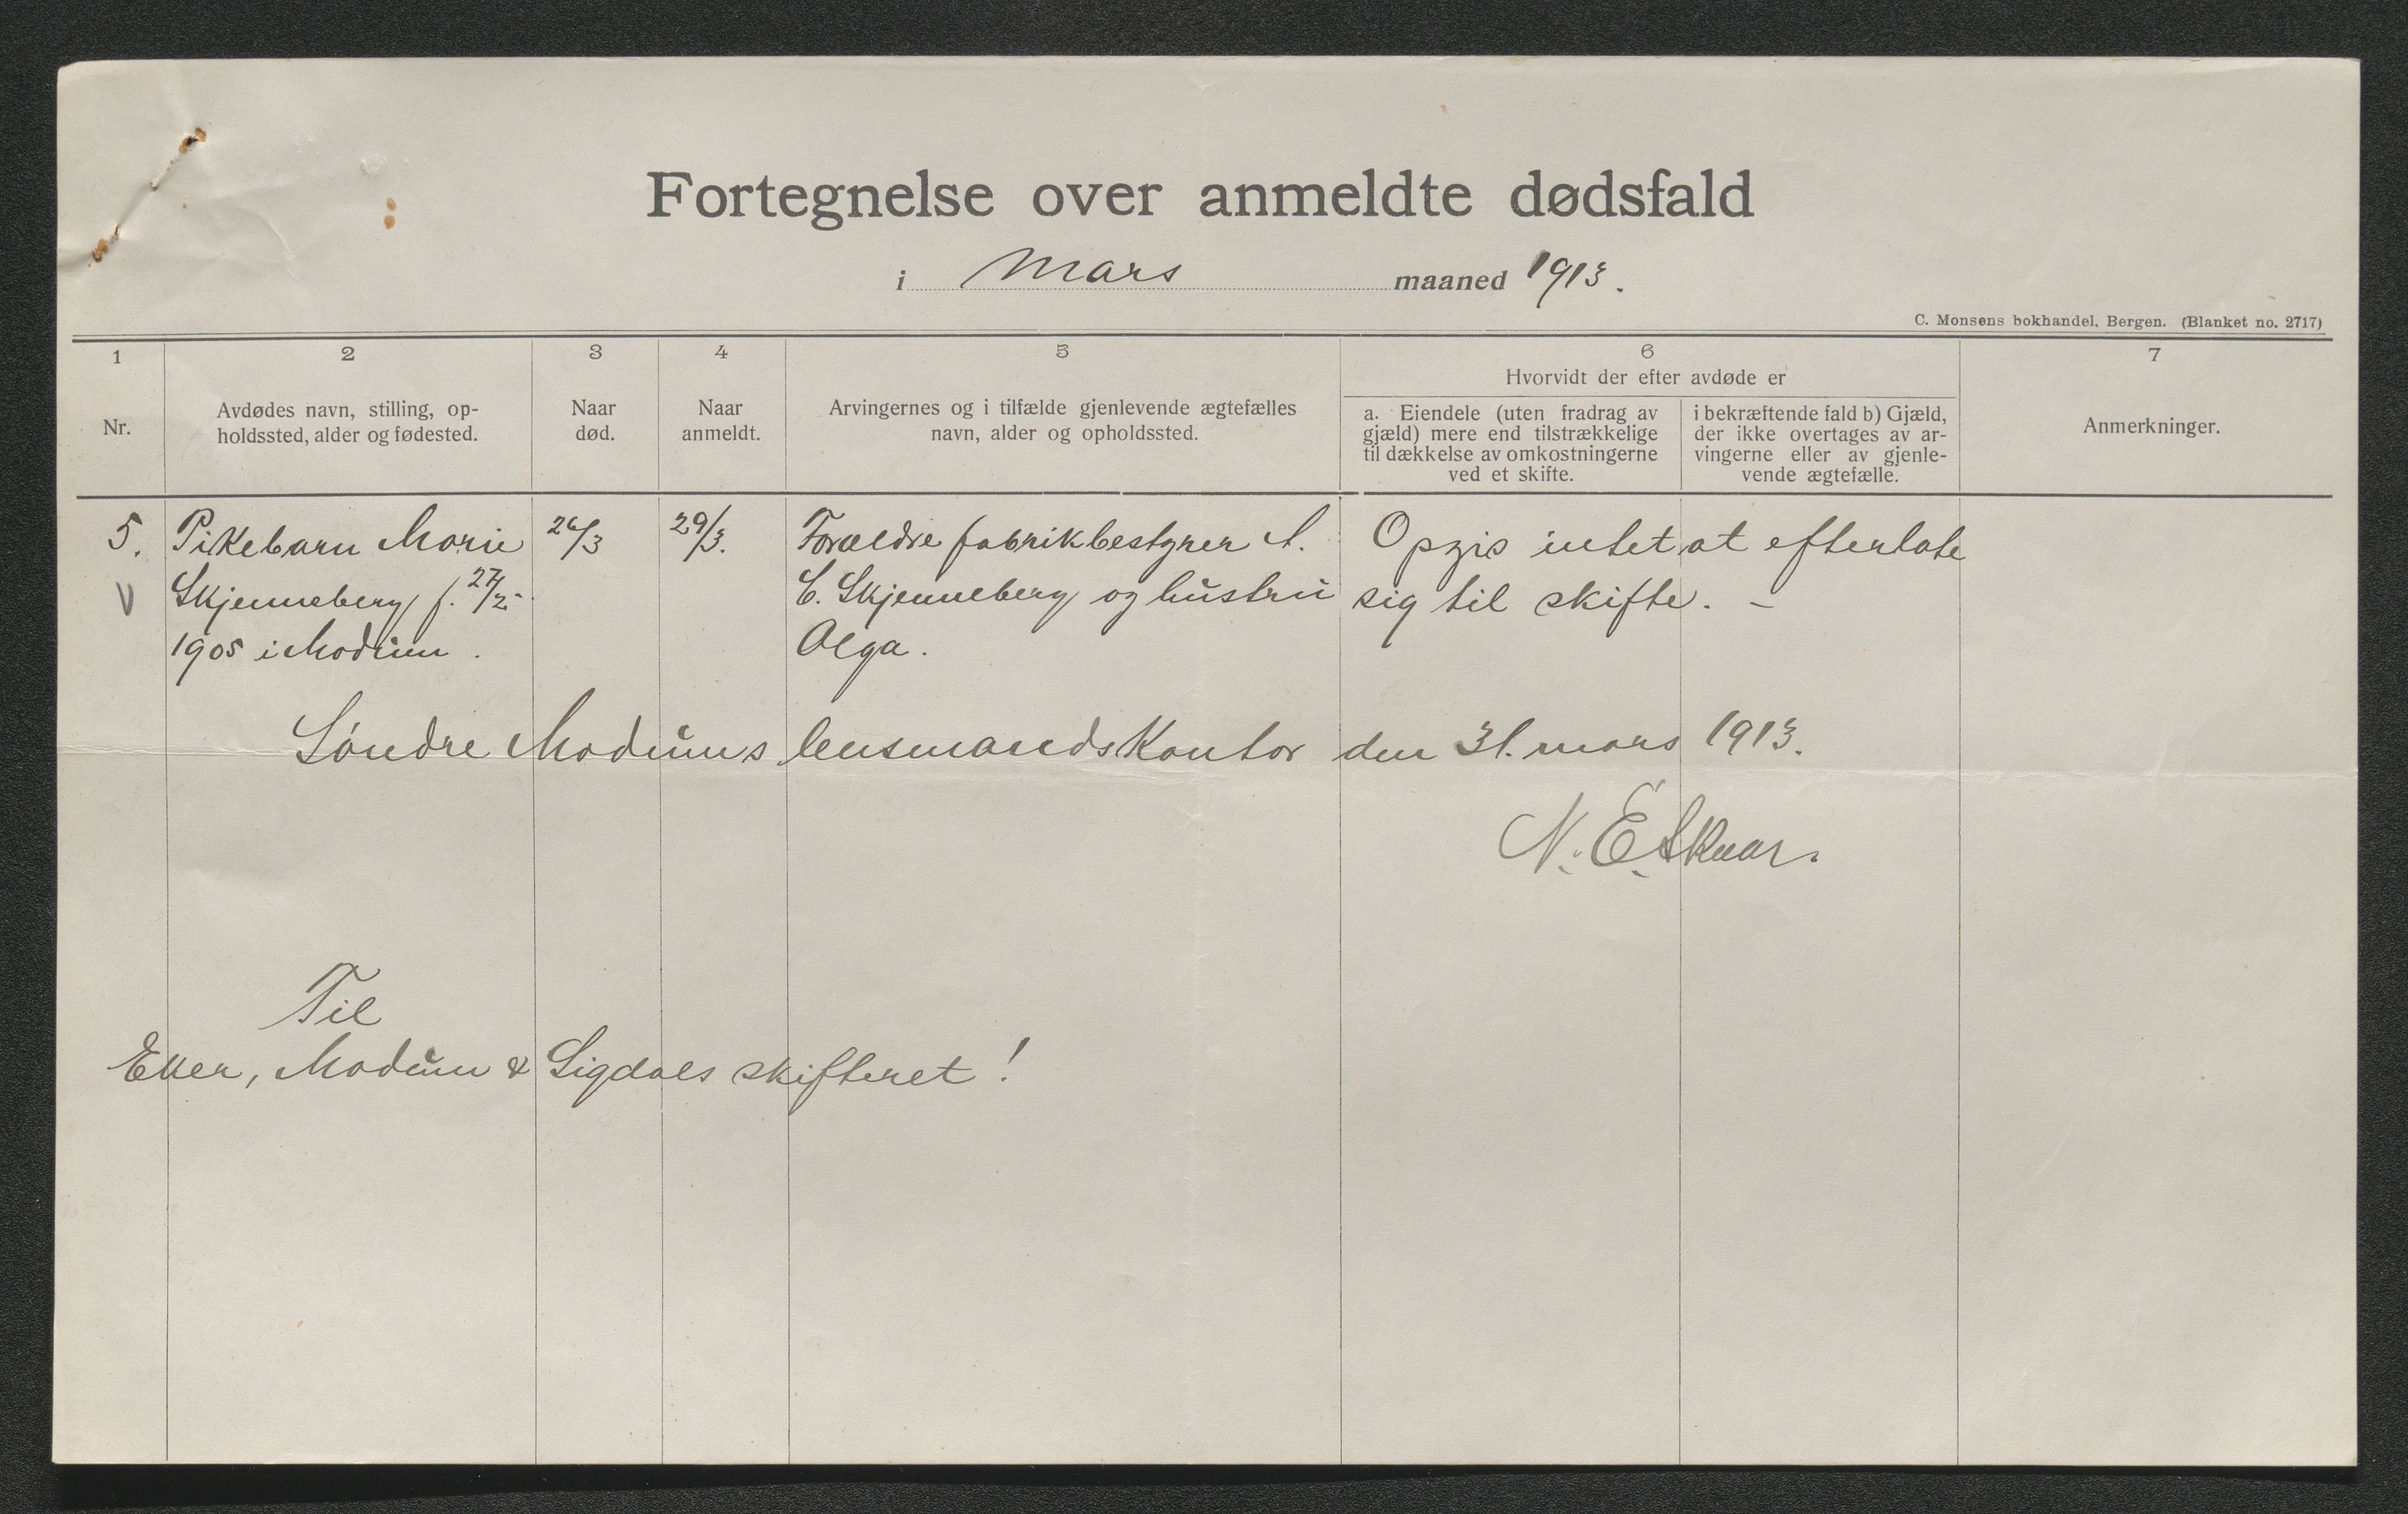 Fortegnelse over anmeldte dødsfald
i Mars maaned 1913.
C. Monsens bokhandel, Bergen. (Blanket no. 2717)
1
Nr.
2
Avdødes navn, stilling, op-
holdssted, alder og fødested.
3
Naar
død.
4
Naar
anmeldt.
5
Arvingernes og i tilfælde gjenlevende ægtefælles
navn, alder og opholdssted.
6
Hvorvidt der efter avdøde er
a. Eiendele (uten fradrag av
gjæld) mere end tilstrækkelige
til dækkelse av omkostningerne
ved et skifte.
i bekræftende fald b) Gjæld,
der ikke overtages av ar-
vingerne eller av gjenle-
vende ægtefælle.
7
Anmerkninger.
5.
V
Pikebarn Marie
Skjenneberg f. 27/2-
1905 i Modum.
26/3
29/3.
Forældre fabrikbestyrer A.
C. Skjenneberg og hustru
Olga.
Opgis intet at efterlate
sig til skifte. –
Søndre Modums lensmandskontor den 31. mars 1913.
N. E.
Til
Eker, Modum & Sigdals skifteret!